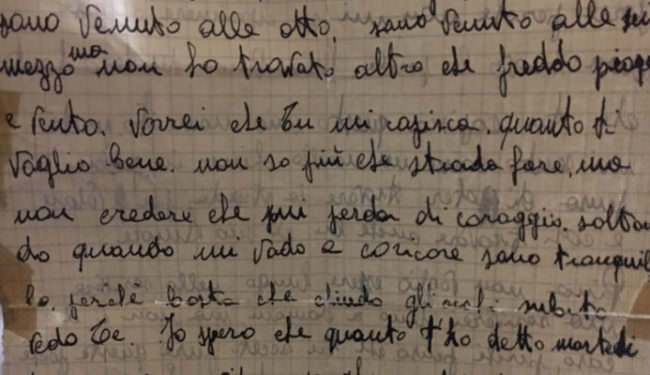 sono venuto alle otto, sono venuto alle sei
mezzo ma non ho trovato altro che freddo piogg
e vento. Vorrei che tu mi capisca. quanto ti
voglio bene. non so più che strada fare, ma
non credere che mi perda di coraggio. soltan
do quando mi vado a coricare sono tranquil
lo. perché basta che chiudo gli occhi subito
vedo te. Io spero che quanto t'ho detto martedi